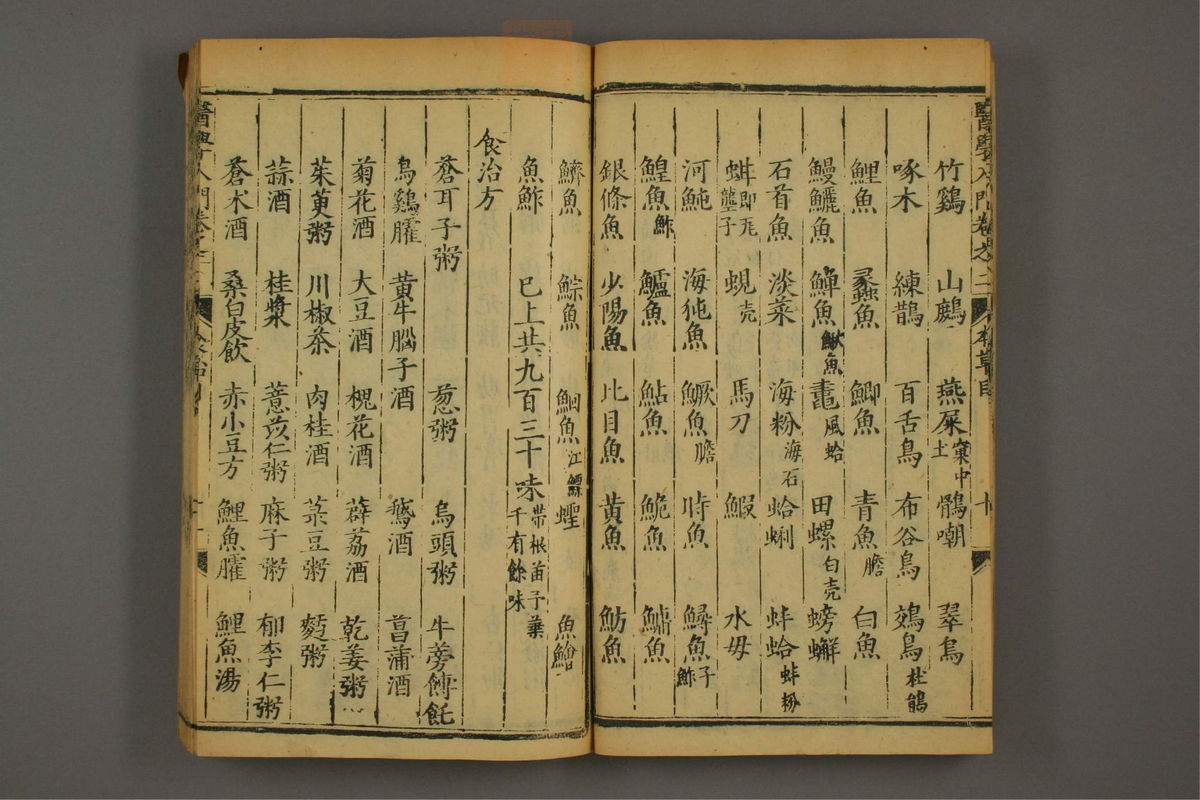 醫學入門卷之二 本草目 十
竹鷄 山鷓 燕屎 窠中土 鶻嘲 翠鳥
啄木 練鵲 百舌鳥 布谷鳥 鴆鳥 杜鵑
鯉魚 蠡魚 鯽魚 青魚 膽 白魚
鰻鱺魚 鱓魚 鰍魚 鼃 風蛤 田螺 白壳 螃蠏
石首魚 淡菜 海粉 海石 蛤蜊 蚌蛤 蚌粉
蚶 即瓦壟子 蜆 壳 馬刀 鰕 水母
河魨 海㹠魚 鱖魚 膽 時魚 鱘魚 子 鮓
鰉魚 鮓 鱸魚 鮎魚 鮠魚 鱅魚
銀條魚 少陽魚 比目魚 黃魚 魴魚
鱭魚 鯮魚 鮰魚 江鰾 蟶 魚鱠
魚鮓 已上共九百三十味 帶根苗子葉千有餘味
食治方
蒼耳子粥 葱粥 烏頭粥 牛蒡餺飥
烏鷄臛 黃牛腦子酒 鵝酒 菖蒲酒
菊花酒 大豆酒 槐花酒 薜荔酒 乾姜粥
茱萸粥 川椒茶 肉桂酒 菉豆粥 麪粥
蒜酒 桂漿 薏苡仁粥 麻子粥 郁李仁粥
蒼朮酒 桑白皮飲 赤小豆方 鯉魚臛 鯉魚湯
醫學入門卷之二